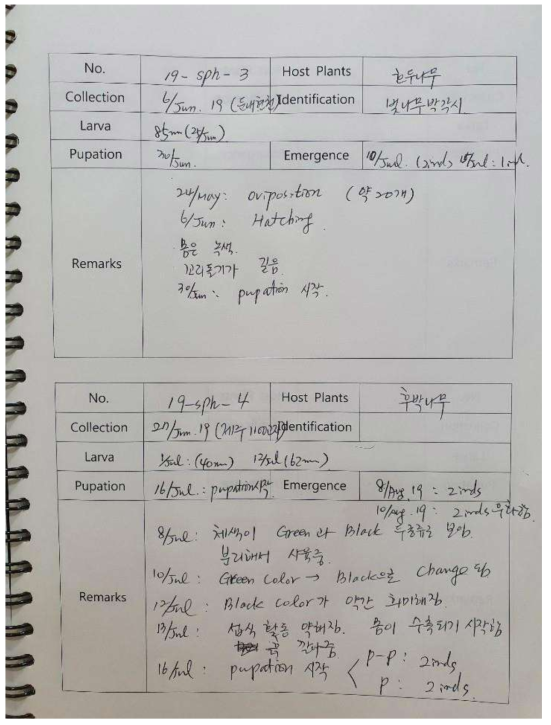 No. 19-sph-3 Host Plants 호두나무
Collection 6/Jun. 19 Identification 벚나무박각시
Larva 85mm (24/Jun)
Pupation 30/Jun. Emergence 10/Jul. (2inds
Remarks
24/May: oviposition (약 20개)
6/Jun: Hatching
몸은 녹색.
꼬리돌기가 긺음.
30/Jun: pupation 시작.
No. 19-sph-4 Host Plants 후박나무
Collection 27/Jun. 19 (제주 1100고지) Identification
Larva 1/Jul: (40mm) 12/Jul (62mm)
Pupation 16/Jul.: pupation시작 Emergence 8/Aug. 19: 2inds
10/Aug. 19: 2inds 우화함
Remarks
8/Jul: 체색이 Green과 Black 두종류로 보아
분리해서 사육중.
10/Jul: Green color → Black으로 change 됨
12/Jul: Black color가 약간 희미해짐.
13/Jul: 섭식 활동 약해짐. 몸이 수축되기 시작함
16/Jul: pupation 시작 < P-P: 2inds
P: 2inds.